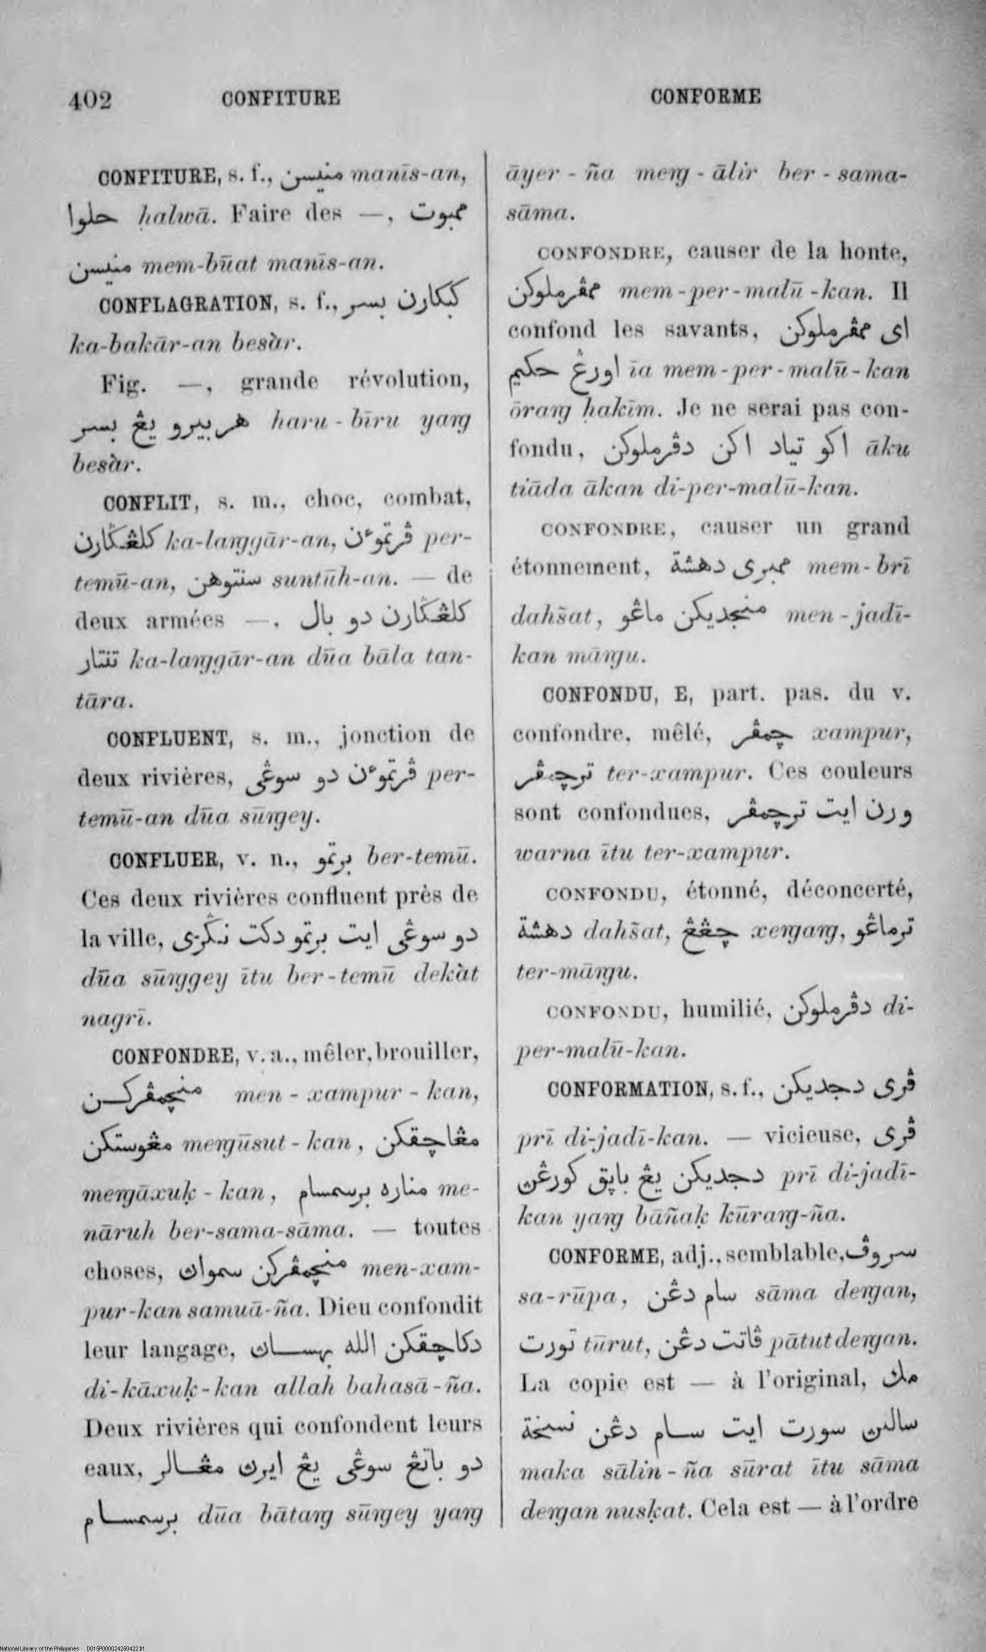 402 CONFITURE CONFORME
CONFITURE, s. f., منيسن manīs-an,
حلوا ḥalwā. Faire des —, ممبوت
منيسن mem-būat manīs-an.
CONFLAGRATION, s. f., كبكارن بسر
ka-bakār-an besàr.
Fig. —, grande révolution,
هربيرو يڠ بسر haru-bīru yaŋg
besàr.
CONFLIT, s. m., choc, combat,
كلڠڬارن ka-laŋggār-an, ڤرتموٴن per-
temū-an, سنتوهن suntūh-an. — de
deux armées —, كلڠڬارن دو بال
تنتار ka-laŋggār-an dūa bāla tan-
tāra.
CONFLUENT, s. m., jonction de
deux rivières, ڤرتموٴن دو سوڠى per-
temū-an dūa sūŋgey.
CONFLUER, v. n., برتمو ber-temū.
Ces deux rivières confluent près de
la ville, دو سوڠى ايت برتمو دكت نڬرى
dūa sūŋggey ītu ber-temū dekàt
nagrī.
CONFONDRE, v. a., mêler, brouiller,
منچمڤركن men-xampur-kan,
مڠوستكن meŋgūsut-kan, مڠاچقكن
meŋgāxuḳ-kan, مناره برسمسام me-
nāruh ber-sama-sāma. — toutes
choses, منچمڤركن سموان men-xam-
pur-kan samuā-ña. Dieu confondit
leur langage, دكاچقكن الله بهسان
di-kāxuḳ-kan allah bahasā-ña.
Deux rivières qui confondent leurs
eaux, دو باتڠ سوڠى يڠ ايرن مڠالر
برسمسام dūa bātaŋg sūŋgey yaŋg
āyer-ña meŋg-ālir ber-sama-
sāma.
CONFONDRE, causer de la honte,
ممڤرملوكن mem-per-malū-kan. Il
confond les savants, اى ممڤرملوكن
اورڠ حكيم īa mem-per-malū-kan
ōraŋg ḥakīm. Je ne serai pas con-
fondu, اكو تياد اكن دڤرملوكن āku
tiāda ākan di-per-malū-kan.
CONFONDRE, causer un grand
étonnement, ممبرى دهشة mem-brī
dahšat, منجديكن ماڠو men-jadī-
kan māŋgu.
CONFONDU, E, part. pas. du v.
confondre, mêlé, چمڤر xampur,
ترچمڤر ter-xampur. Ces couleurs
sont confondues, ورن ايت ترچمڤر
warna ītu ter-xampur.
CONFONDU, étonné, déconcerté,
دهشة dahšat, چڠڠ xeŋgaŋg, ترماڠو
ter-māŋgu.
CONFONDU, humilié, دڤرملوكن di-
per-malū-kan.
CONFORMATION, s. f., ڤرى دجديكن
prī di-jadī-kan. — vicieuse, ڤرى
دجديكن يڠ باڽق كورڠن prī di-jadī-
kan yaŋg bāñaḳ kūraŋg-ña.
CONFORME, adj., semblable, سروڤ
sa-rūpa, سام دڠن sāma deŋgan,
تورت tūrut, ڤاتت دڠن pātut deŋgan.
La copie est — à l'original, مك
سالنن سورت ايت سام دڠن نسخة
maka sālin-ña sūrat ītu sāma
deŋgan nusḳat. Cela est — à l'ordre
National Library of the Philippines